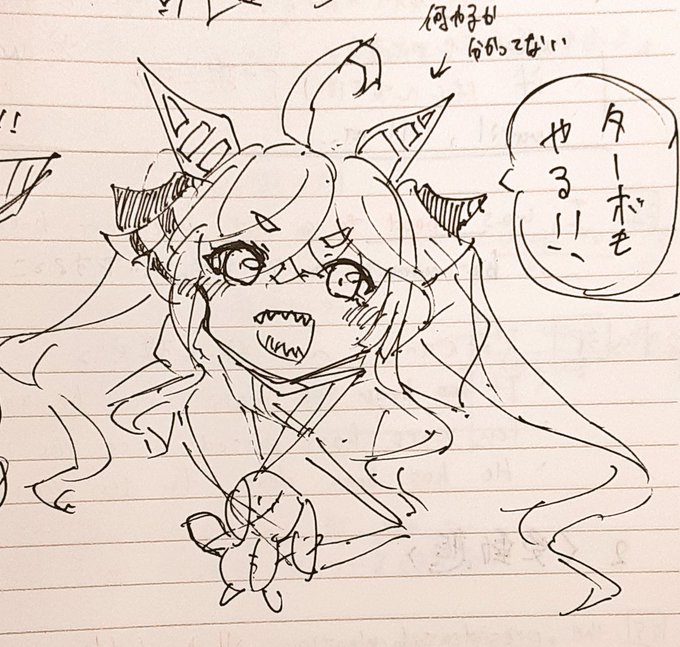 何やるか
分かってない
ターボも
やる!!
!!